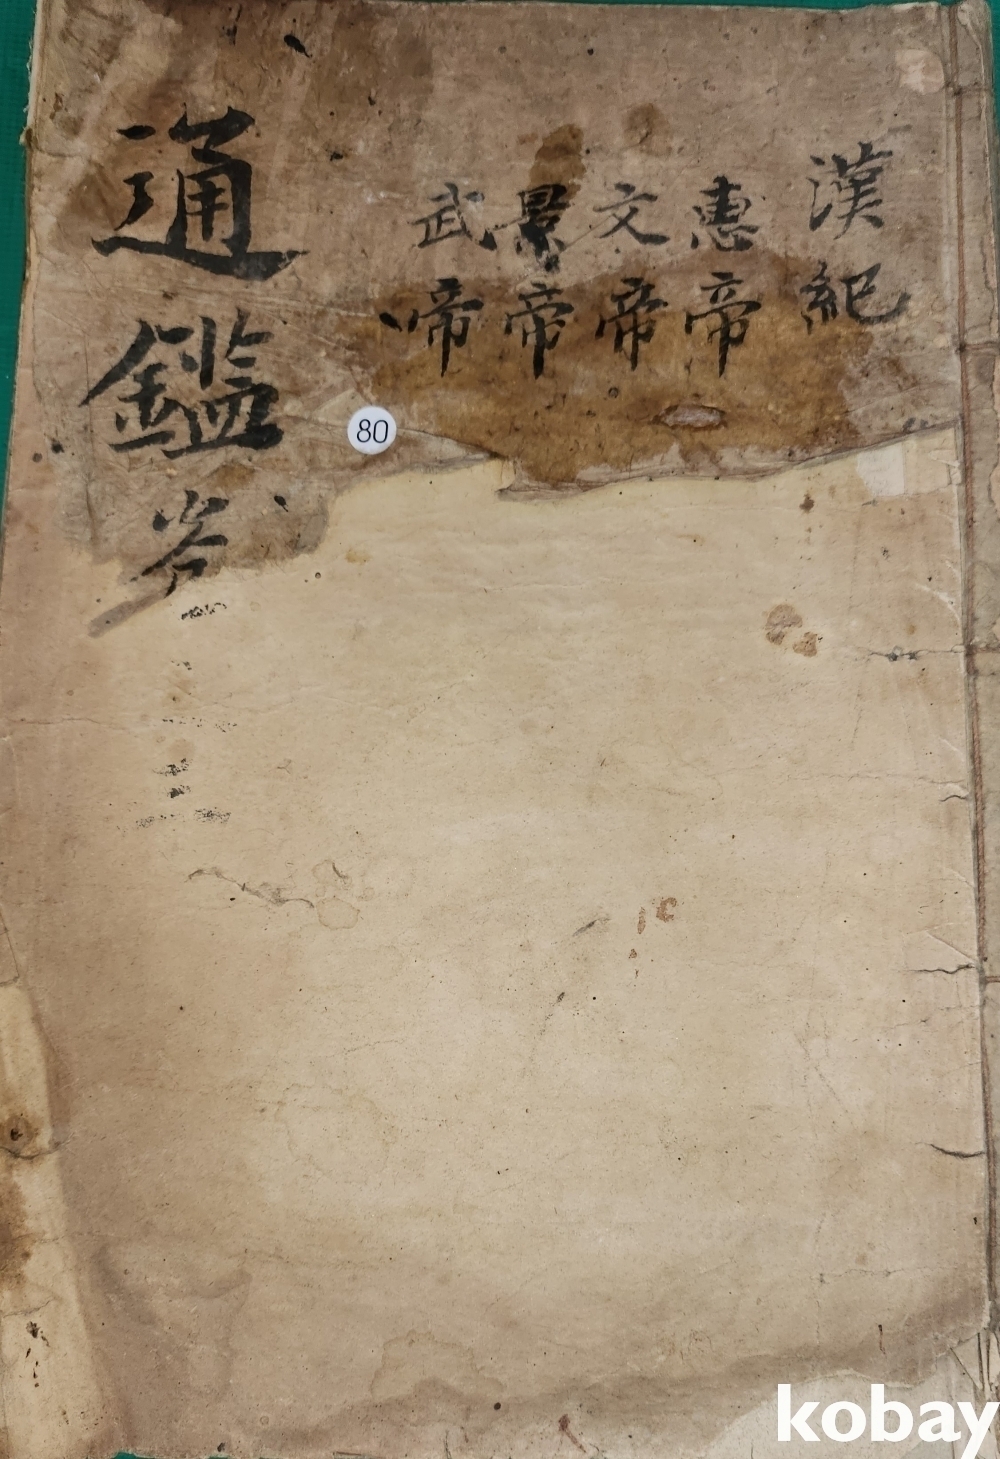 漢紀
惠帝
文帝
景帝
武帝
通鑑
80
kobay